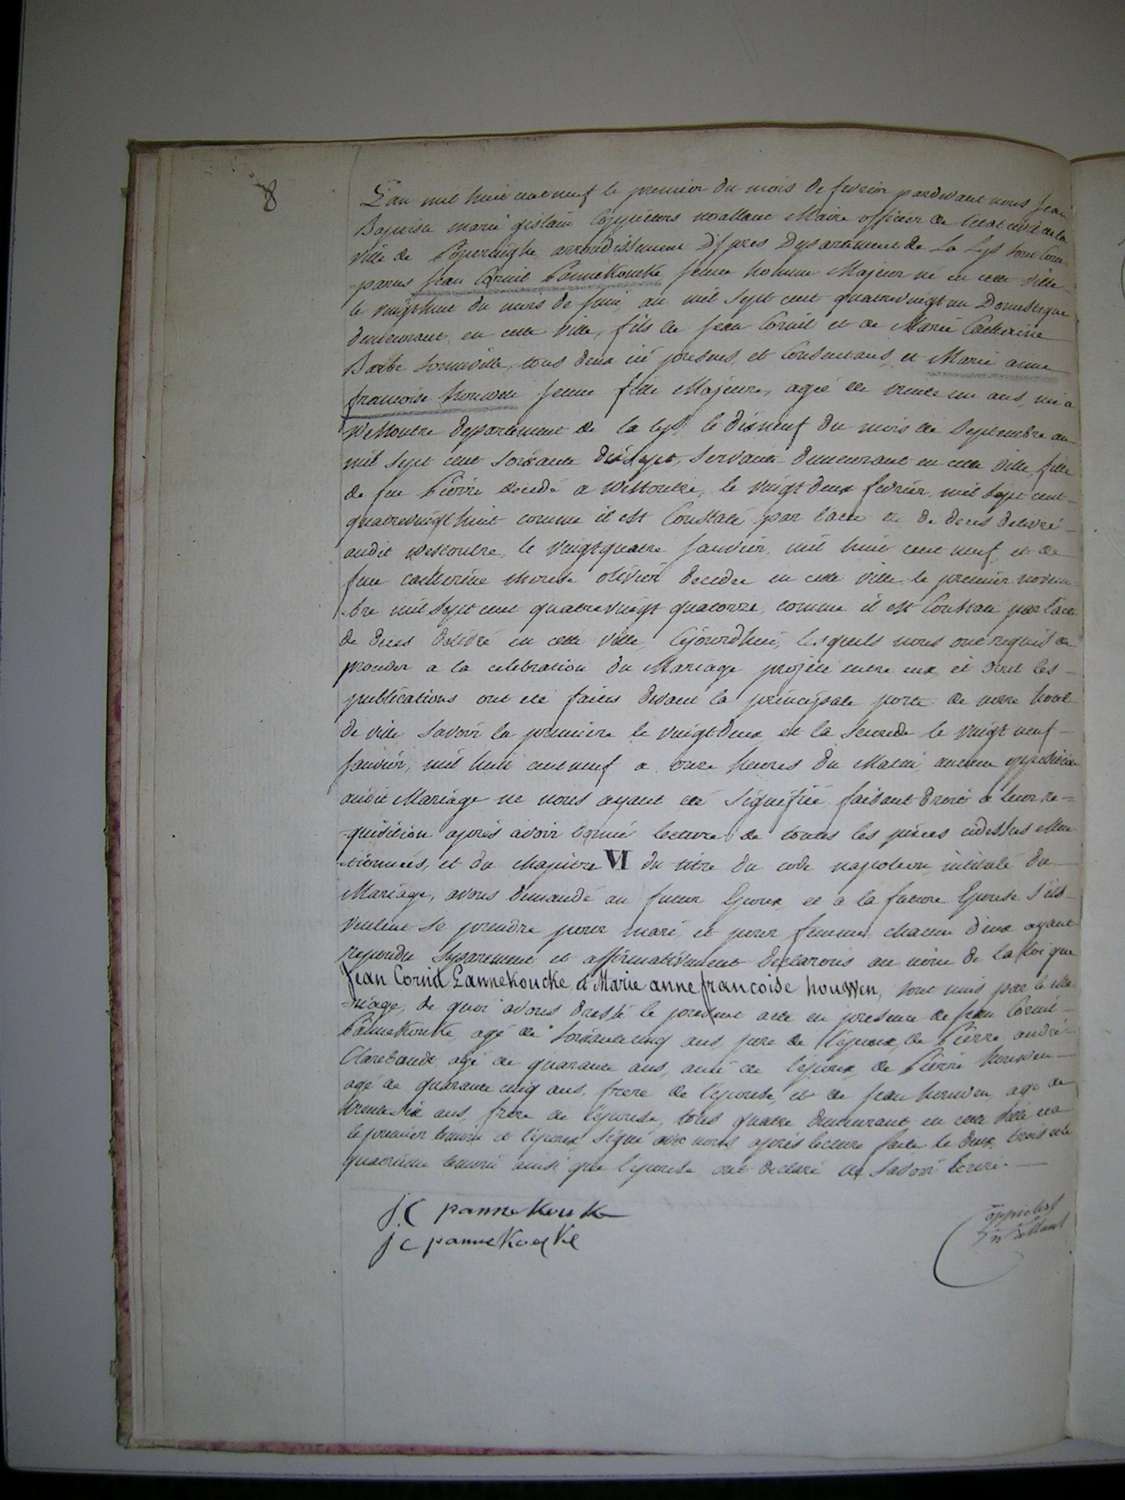 8
L'an mil huit cent neuf le premier du mois de fevrier pardevant nous Jean
Baptiste Marie gislain Coppieters Maire officier de l'etat civil de la
ville de Poperinghe arrondissement D'ypres Departement de La Lys sont Com-
-parus Jean Cornil Pannekoucke jeune homme Majeur né en cette ville
le vingt huit du mois de Juin, an mil sept cent quatre vingt un Domestique
demeurant en cette ville, fils de Jean Cornil et de Marie Catherine
Barbe tous deux ici presens, et Consentans, et Marie anne
francoise houwen jeune fille Majeure, agée de trente un ans, née a
Westoutre departement de la Lys le dix neuf du mois de Septembre an
mil sept cent soixante dix sept, servante demeurant en cette ville, fille
de feu Pierre decedé a Westoutre, le vingt deux fevrier mil sept cent
quatre vingt huit comme il est Constaté par l'acte de deces delivré
audit Westoutre, le vingt quatre Janvier mil huit cent neuf, et de
feue catherine therese olivier decedée en cette ville le premier novem-
-bre mil sept cent quatre vingt quatorze, comme il est Constaté par l'acte
de deces delivré en cette ville cejourdhui, lesquels nous ont requis de
proceder a la celebration du Mariage projeté entre eux et dont les
publications ont été faites devant la principale porte de notre hotel
de ville savoir la premiere le vingt deux et la seconde le vingt neuf
Janvier, mil huit cent neuf a onze heures du Matin, aucune opposition
audit Mariage ne nous ayant été signifiée faisant droit a leur re-
-quisition après avoir donné lecture de toutes les pièces cidessus Men
-tionnées, et du chapitre VI du titre du code napoleon intitulé du
Mariage, avons demandé au futur Epoux et a la future Epouse s'ils
veulent se prendre pour mari et pour femme, chacun d'eux ayant
repondu separement et affirmativement declarons au nom de la loi que
Jean Cornil Pannekoucke et Marie anne francoise houwen, sont unis par le Ma
-riage, de quoi avons dressé le present acte en presence de Jean Cornil
Pannekoucke agé de soixante cinq ans, pere de l'epoux, de Pierre andré
agé de quarante ans, ami de l'epoux, de Pierre houwen
agé de quarante cinq ans, frere de l'epouse, et de Jean houwen agé de
trente six ans, frere de l'epouse, tous quatre demeurant en cette ville et a
le premier temoin et l'epoux signé avec nous après lecture faite le deux trois et le
quatrieme temoin ainsi que l'epouse ont declaré ne savoir Ecrire.
j.C pannekouke
j c pannekoucke
Coppieters